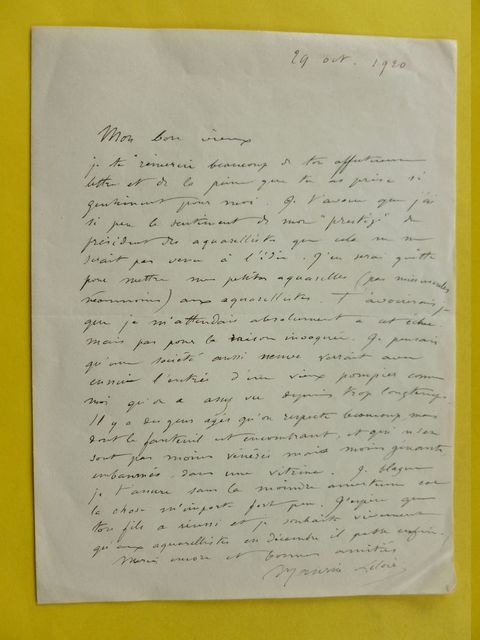 29 oct. 1920
Mon bon vieux
je te remercie beaucoup de ton affectueuse
lettre et de la peine que tu as prise si
gentiment pour moi. Je t'avoue que j'ai
si peu le sentiment de mon "prestige" de
président des aquarellistes que cela ne me
serait pas venu à l'idée. J'en serai quitte
pour mettre mes petites aquarelles (pas minuscules
néanmoins) aux aquarellistes. T'avouerais je
que je m'attendais absolument à cet échec
mais pas pour la raison invoquée. Je pensais
qu'une société aussi neuve verrait avec
ennui l'entrée d'un vieux pompier comme
moi qu'on a assez vu depuis trop longtemps.
Il y a des gens âgés qu'on respecte beaucoup mais
dont le fauteuil est encombrant, et qui n'en
sont pas moins vénérés mais moins gênants
embaumés dans une vitrine. Je blague
je t'assure sans la moindre amertume car
la chose m'importe fort peu. J'espère que
ton fils a réussi et je souhaite vivement
qu'aux aquarellistes en décembre il passe enfin.
Merci encore et bonnes amitiés
Maurice Leloir